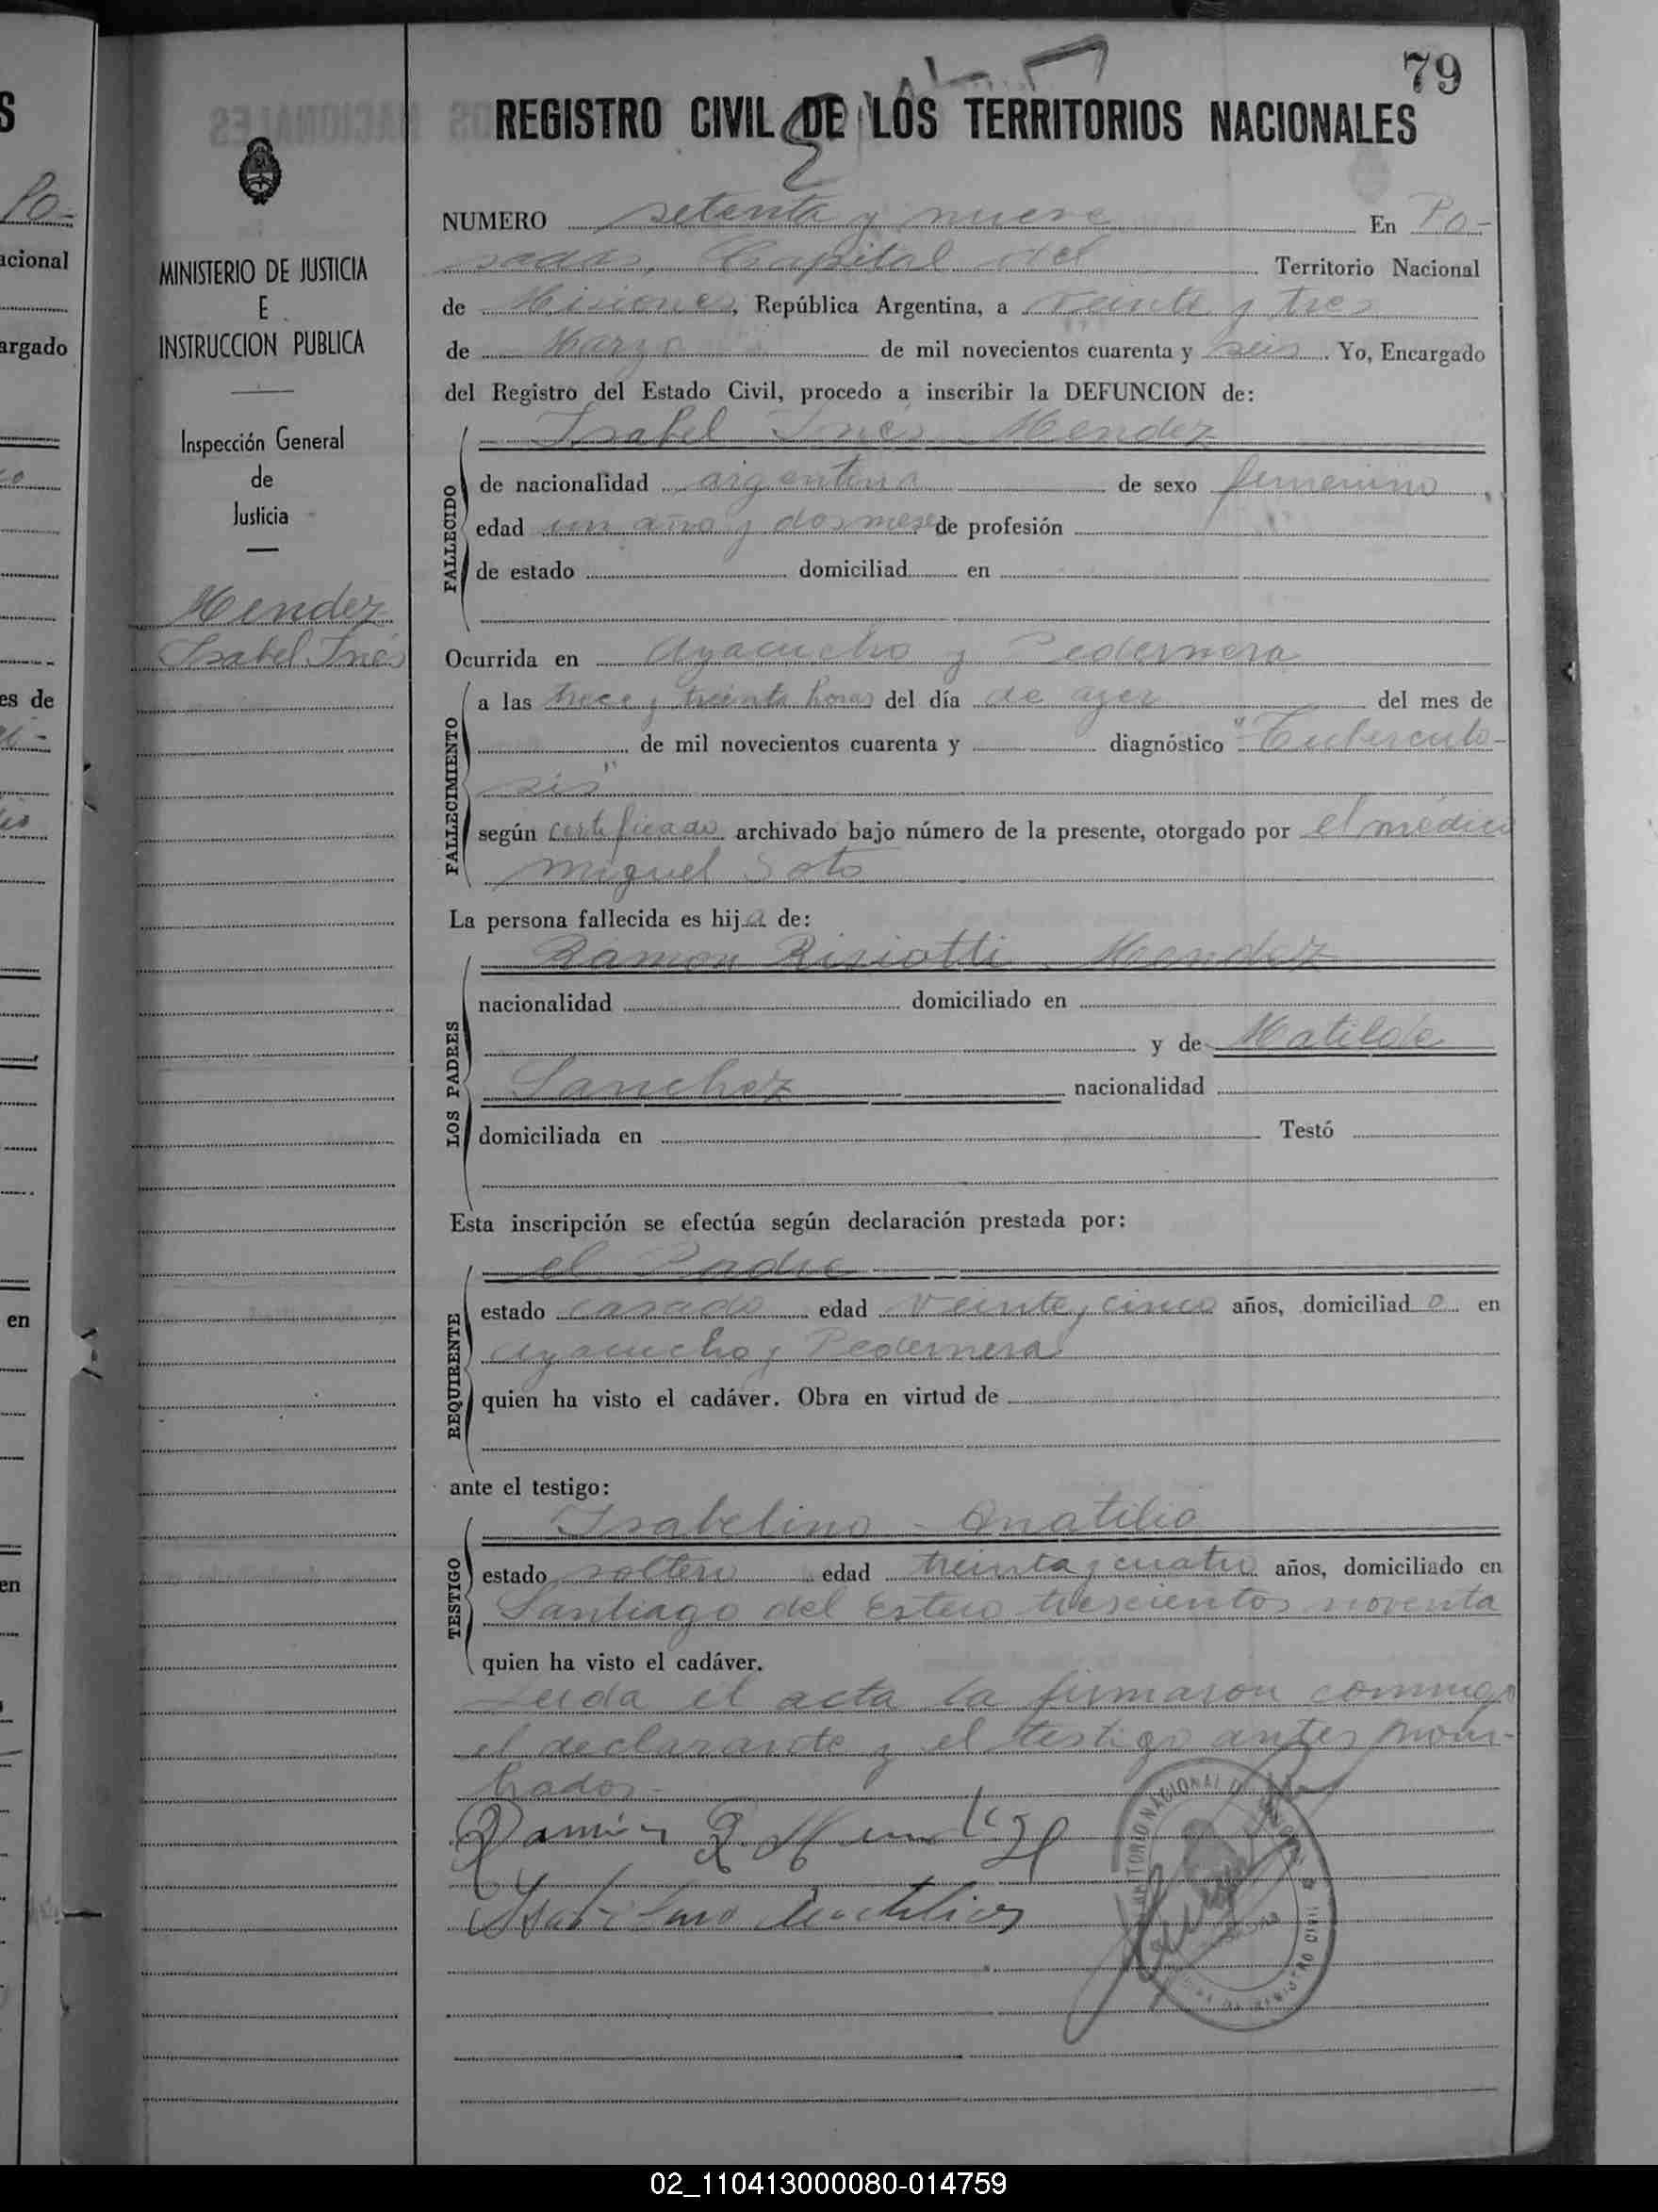 79
REGISTRO CIVIL DE LOS TERRITORIOS NACIONALES
MINISTERIO DE JUSTICIA
E
INSTRUCCION PUBLICA
Inspección General
de
Justicia
Mendez
Isabel Inés
NUMERO setenta y nueve En Po-
sadas, Capital del Territorio Nacional
de Misiones, República Argentina, a veinte y tres
de Marzo de mil novecientos cuarenta y seis. Yo, Encargado
del Registro del Estado Civil, procedo a inscribir la DEFUNCION de:
Isabel Inés Mendez
FALLECIDO
de nacionalidad argentina de sexo femenino
edad un año y dos meses de profesión
de estado domiciliad en
Ocurrida en Ayacucho y Pedernera
FALLECIMIENTO
a las trece y treinta horas del día de ayer del mes de
de mil novecientos cuarenta y diagnóstico "Tuberculo-
sis"
según certificado archivado bajo número de la presente, otorgado por el médico
Miguel Soto
La persona fallecida es hija de:
LOS PADRES
Ramon Risiotti Mendez
nacionalidad domiciliado en
y de Matilde
Sanchez nacionalidad
domiciliada en Testó
Esta inscripción se efectúa según declaración prestada por:
REQUIRENTE
el Padre
estado casado edad veinte y cinco años, domiciliado en
Ayacucho y Pedernera
quien ha visto el cadáver. Obra en virtud de
ante el testigo:
TESTIGO
Isabelino
estado soltero edad treinta y cuatro años, domiciliado en
Santiago del Estero trescientos noventa
quien ha visto el cadáver.
Leida el acta la firmaron conmigo
el declarante y el testigo antes nom-
brados.-
Ramón R. Mendez
acional
argado
es de
en
en
02_110413000080-014759